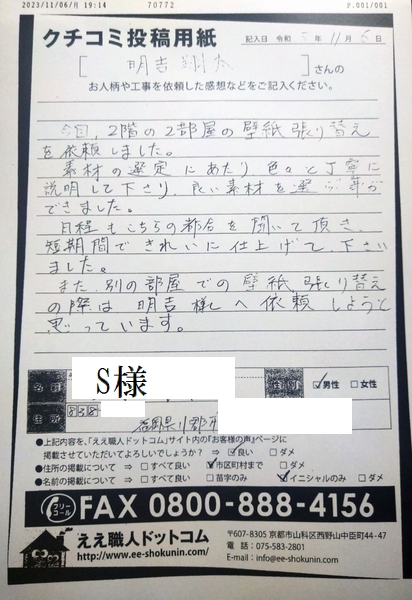 2023/11/06/月 19:14 70772 P.001/001
クチコミ投稿用紙 記入日 令和 5年 11月 6日
[ 明吉 剛太 ]さんの
お人柄や工事を依頼した感想などをご記入ください。
今回、2階の2部屋の壁紙張り替え
を依頼しました。
素材の選定にあたり色々と丁寧に
説明して下さり、良い素材を選ぶ事が
できました。
日程もこちらの都合を聞いて頂き、
短期間できれいに仕上げて下さい
ました。
また、別の部屋での壁紙張り替え
の際は明吉様へ依頼しようと
思っています。
名前 S様 性別 ✓男性 □女性
住所 838
福岡県小郡市
●上記内容を、「ええ職人ドットコム」サイト内の『お客様の声』ページに
掲載させていただいてよろしいでしょうか? ⇒ ✓良い □ダメ
●住所の掲載について ⇒ □すべて良い ✓市区町村まで □ダメ
●名前の掲載について ⇒ □すべて良い □苗字のみ ✓イニシャルのみ □ダメ
フリーコール FAX 0800-888-4156
ええ職人ドットコム
http://www.ee-shokunin.com/
〒607-8305 京都市山科区西野山中臣町44-47
電話:075-583-2801
E-mail:info@ee-shokunin.com